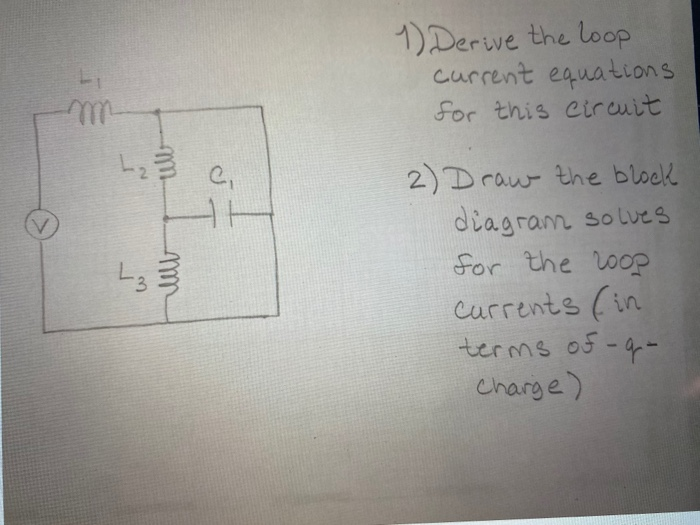 1) Derive the loop
current equations
for this circuit
2) Draw the block
diagram solves
for the loop
currents (in
terms of -q-
charge)
L1
L2
C1
V
L3